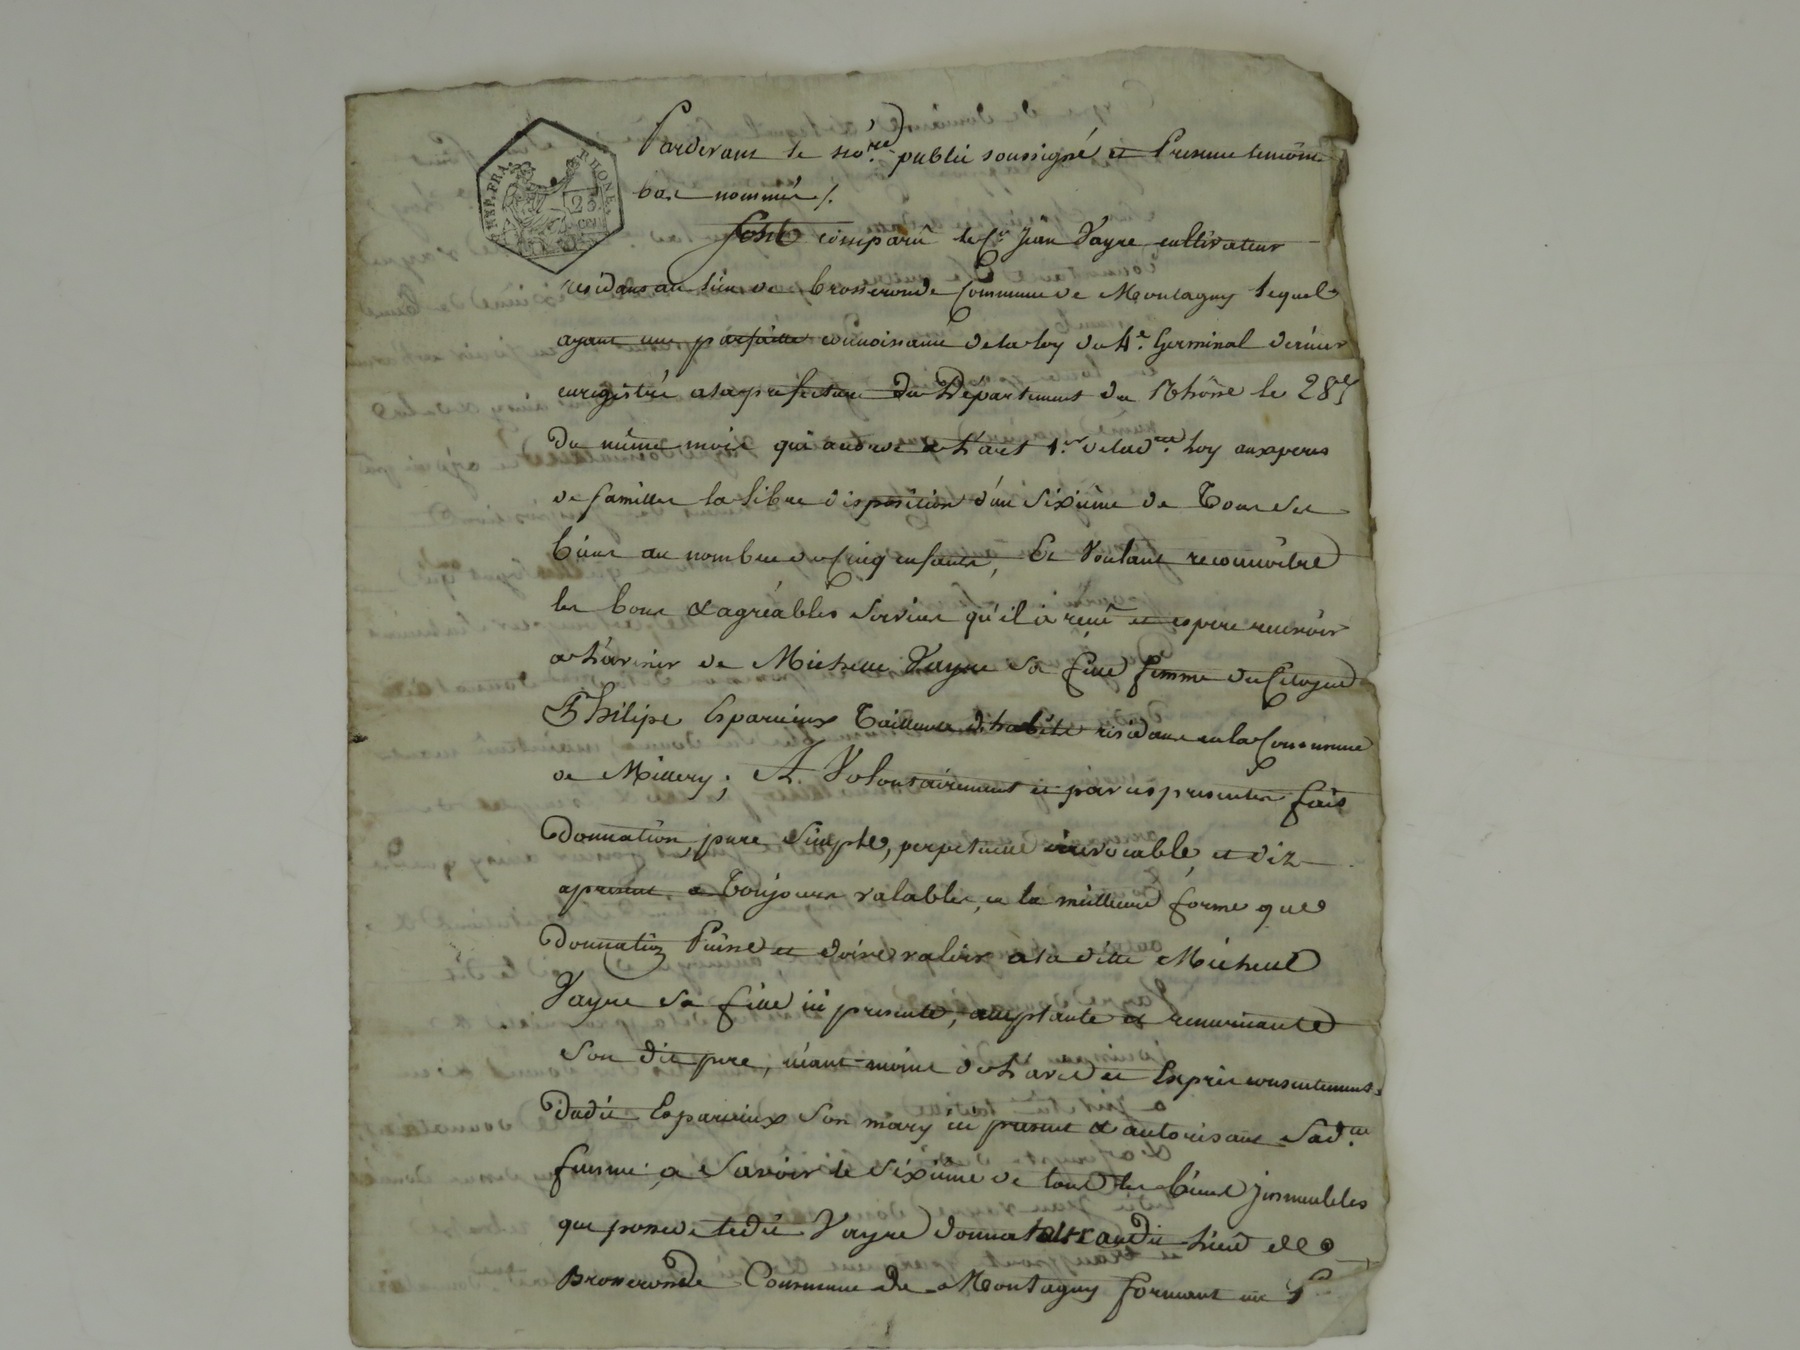 REP. FRA. RHONE. 25 CEN
Pardevant le no.re public soussigné et Presence temoins
bas nommés /.
font comparû le C.n Jean Vayre cultivateur
residans au lieu de brosseronde Commune de Montagny lequel
ayant une parfaitte connoissance de la loy du 4.e Germinal dernier
enregistré a la prefecture du Département du Rhône le 28
du même mois qui acorde a l'art 1.er de lad.te loy aux peres
de familles la libre disposition d'un Sixième de Tous Ses
biens au nombre de Cinq enfants, Et Voulant reconnoitre
les bons & agréables Services qu'il a reçû et espere recevoir
a l'avenir de Michelle Vayre Sa fille femme du Citoyen
Philipe Esparcieux Tailleur d'habits residans en la Commune
de Millery; A Volontairement et par ces presentes fait
Donnation, pure Simple, perpetuelle irrevocable, et diz
apresent a Toujours valables, en la meilleure forme que
Donnation Puisse et doive valoir a la ditte Michelle
Vayre Sa fille ici presente, acceptante et remerciante
Son dit pere, néant-moins de l'avis et Exprès consentement
dudit Esparcieux Son mary ici present & autorisant Sad.te
femme; a Savoir le Sixième de tous les biens jmmeubles
que possede ledit Vayre donnateur audit lieu de
Brosseronde Commune de Montagny formant un